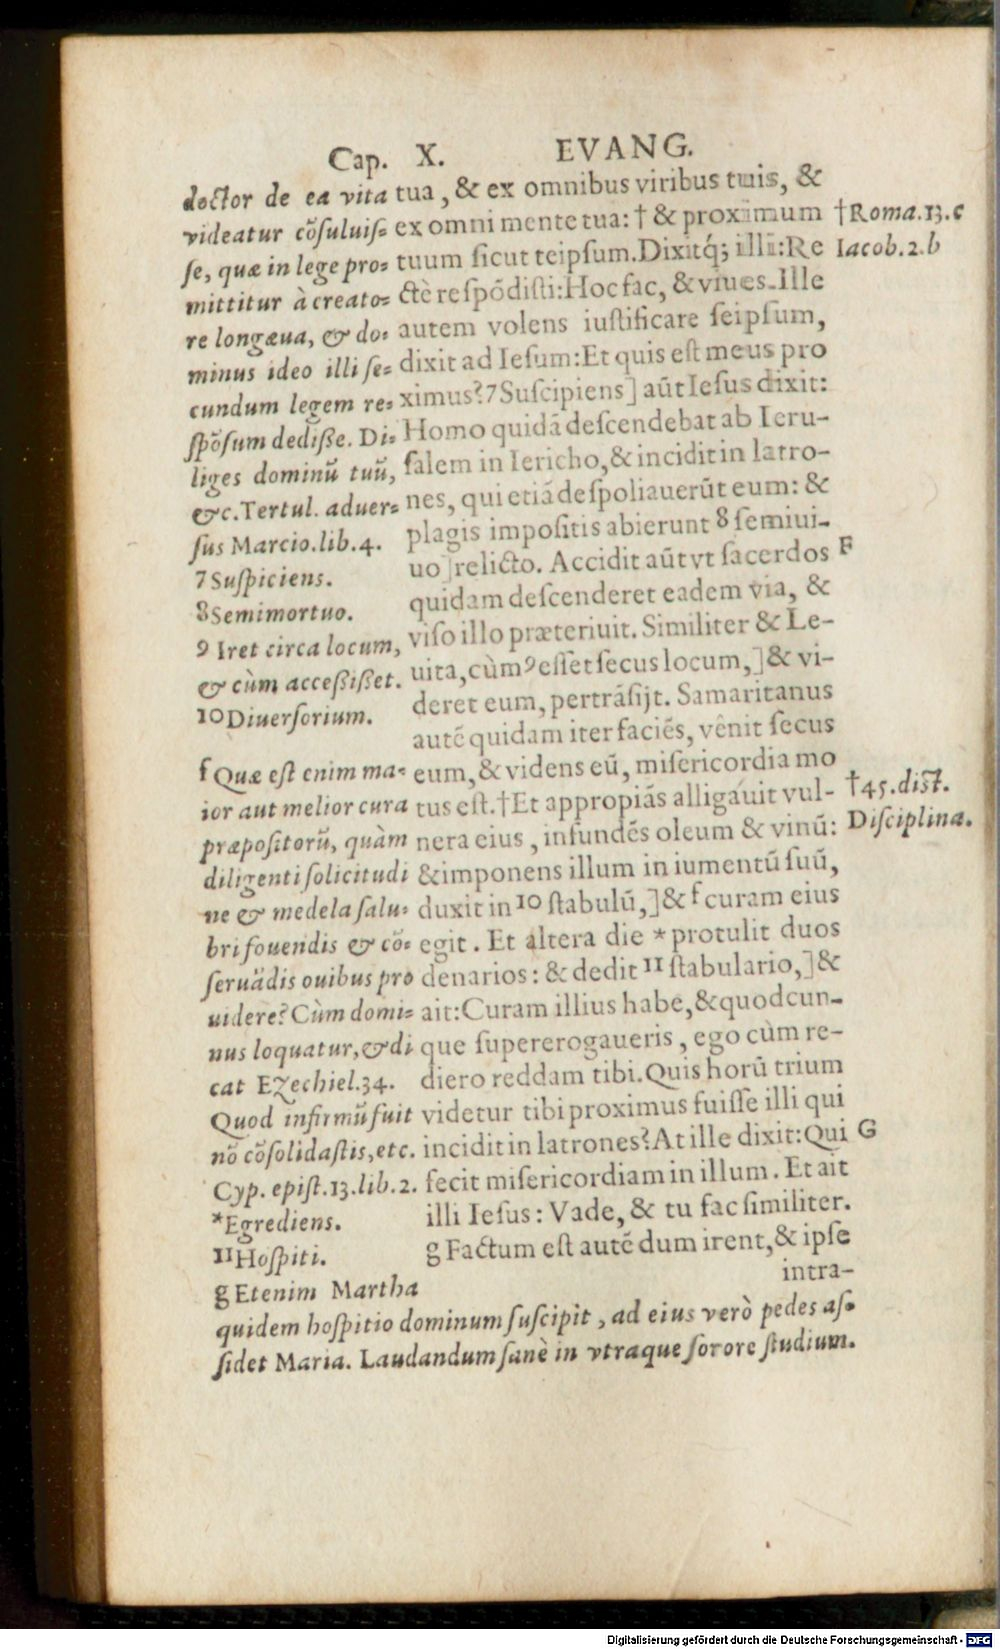 Cap. X. EVANG.
doctor de ea vita
videatur cõſuluiſ=
ſe, quæ in lege pro=
mittitur à creato=
re longæua, & do=
minus ideo illi ſe=
cundum legem re=
ſpõſum dediſſe. Di=
liges dominũ tuũ,
&c. Tertul. aduer=
ſus Marcio. lib. 4.
7 Suſpiciens.
8 Semimortuo.
9 Iret circa locum,
& cùm acceßißet.
10 Diuerſorium.
f Quæ eſt enim ma=
ior aut melior cura
præpoſitorũ, quàm
diligenti ſolicitudi
ne & medela ſalu=
bri fouendis & cõ=
ſeruãdis ouibus pro
uidere? Cùm domi=
nus loquatur, & di
cat Ezechiel. 34.
Quod infirmũ fuit
nõ cõſolidaſtis, etc.
Cyp. epiſt. 13. lib. 2.
*Egrediens.
11 Hoſpiti.
g Etenim Martha
tua, & ex omnibus viribus tuis, &
ex omni mente tua: † & proximum
tuum ſicut teipſum. Dixitq́; illi: Re
ctè reſpõdiſti: Hoc fac, & viues. Ille
autem volens iuſtificare ſeipſum,
dixit ad Ieſum: Et quis eſt meus pro
ximus? 7 Suſcipiens] aũt Ieſus dixit:
Homo quidã deſcendebat ab Ieru-
ſalem in Iericho, & incidit in latro-
nes, qui etiã deſpoliauerũt eum: &
plagis impoſitis abierunt 8 ſemiui-
uo] relicto. Accidit aũt vt ſacerdos
quidam deſcenderet eadem via, &
viſo illo præteriuit. Similiter & Le-
uita, cùm 9 eſſet ſecus locum,] & vi-
deret eum, pertrãſijt. Samaritanus
autẽ quidam iter faciẽs, vênit ſecus
eum, & videns eũ, miſericordia mo
tus eſt. † Et appropiãs alligáuit vul-
nera eius, infundẽs oleum & vinũ:
& imponens illum in iumentũ ſuũ,
duxit in 10 ſtabulũ,] & f curam eius
egit. Et altera die * protulit duos
denarios: & dedit 11 ſtabulario,] &
ait: Curam illius habe, & quodcun-
que ſupererogaueris, ego cùm re-
diero reddam tibi. Quis horũ trium
videtur tibi proximus fuiſſe illi qui
incidit in latrones? At ille dixit: Qui
fecit miſericordiam in illum. Et ait
illi Ieſus: Vade, & tu fac ſimiliter.
g Factum eſt autẽ dum irent, & ipſe
intra-
†Roma. 13. c
Iacob. 2. b
F
†45. diſt.
Diſciplina.
G
quidem hoſpitio dominum ſuſcipit, ad eius verò pedes aſ=
ſidet Maria. Laudandum ſanè in vtraque ſorore ſtudium.
Digitalisierung gefördert durch die Deutsche Forschungsgemeinschaft - DFG